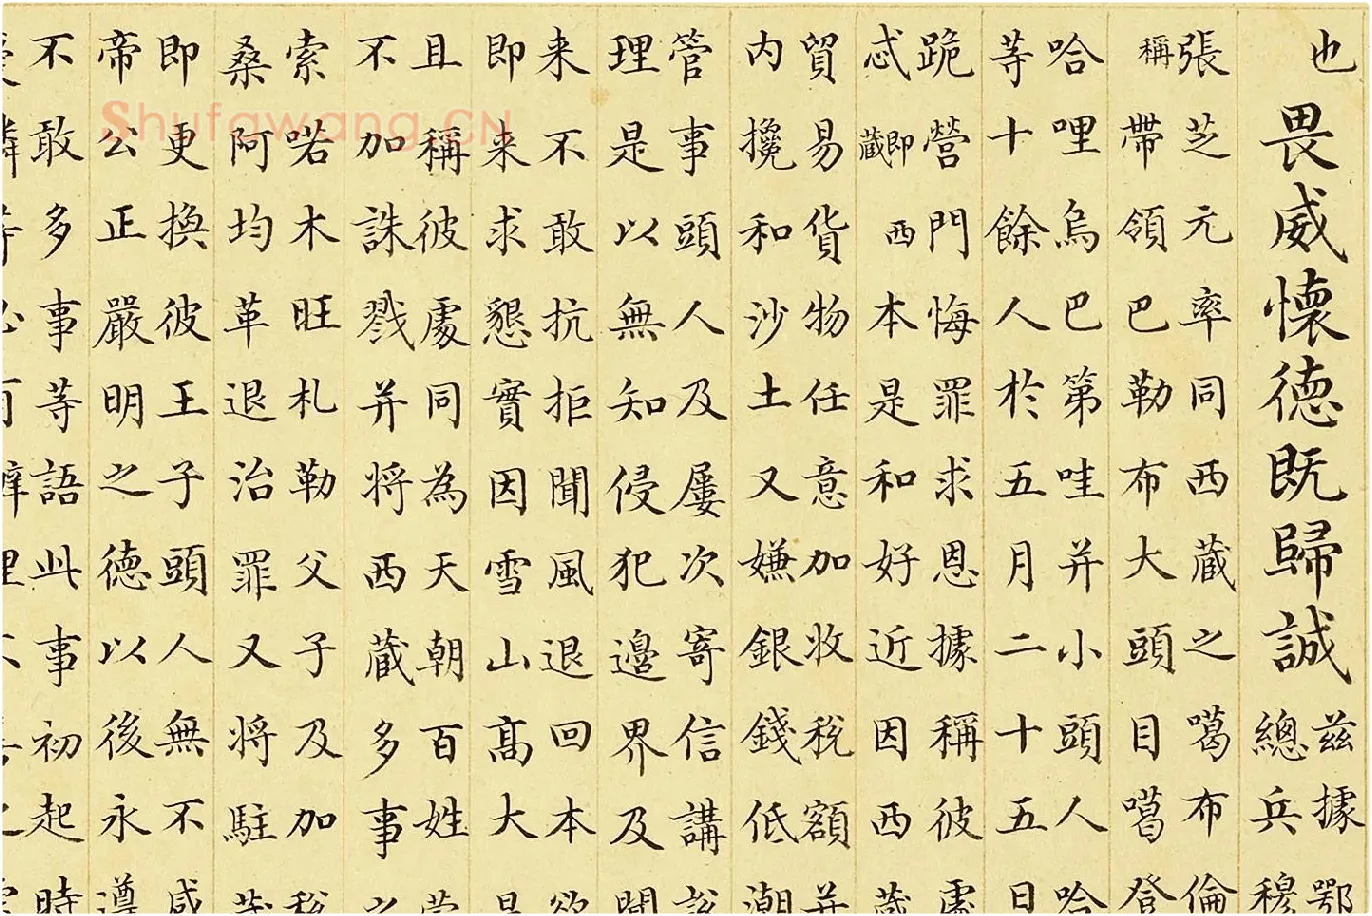 也
畏威懷德既歸誠
兹據鄂
總兵穆
張芝元率同西藏之噶布倫
稱帶領巴勒布大頭目噶登
哈哩烏巴第哇并小頭人哈
等十餘人於五月二十五日
跪營門悔罪求恩據稱彼處
忒即藏西本是和好近因西藏
貿易貨物任意加收稅額并
内攙和沙土又嫌銀錢低潮
管事頭人及屢次寄信講說
理是以無知侵犯邊界及聞
来不敢抗拒聞風退回本欲
即来求懇實因雪山高大是
且稱彼處同為天朝百姓蒙
不加誅戮并將西藏多事以
索喏木旺札勒父子及加稅
桑阿均革退治罪又將駐藏
即更換彼王子頭人無不感
帝公正嚴明之德以後永遵
不敢多事等語此事初起時
Shufawang.CN